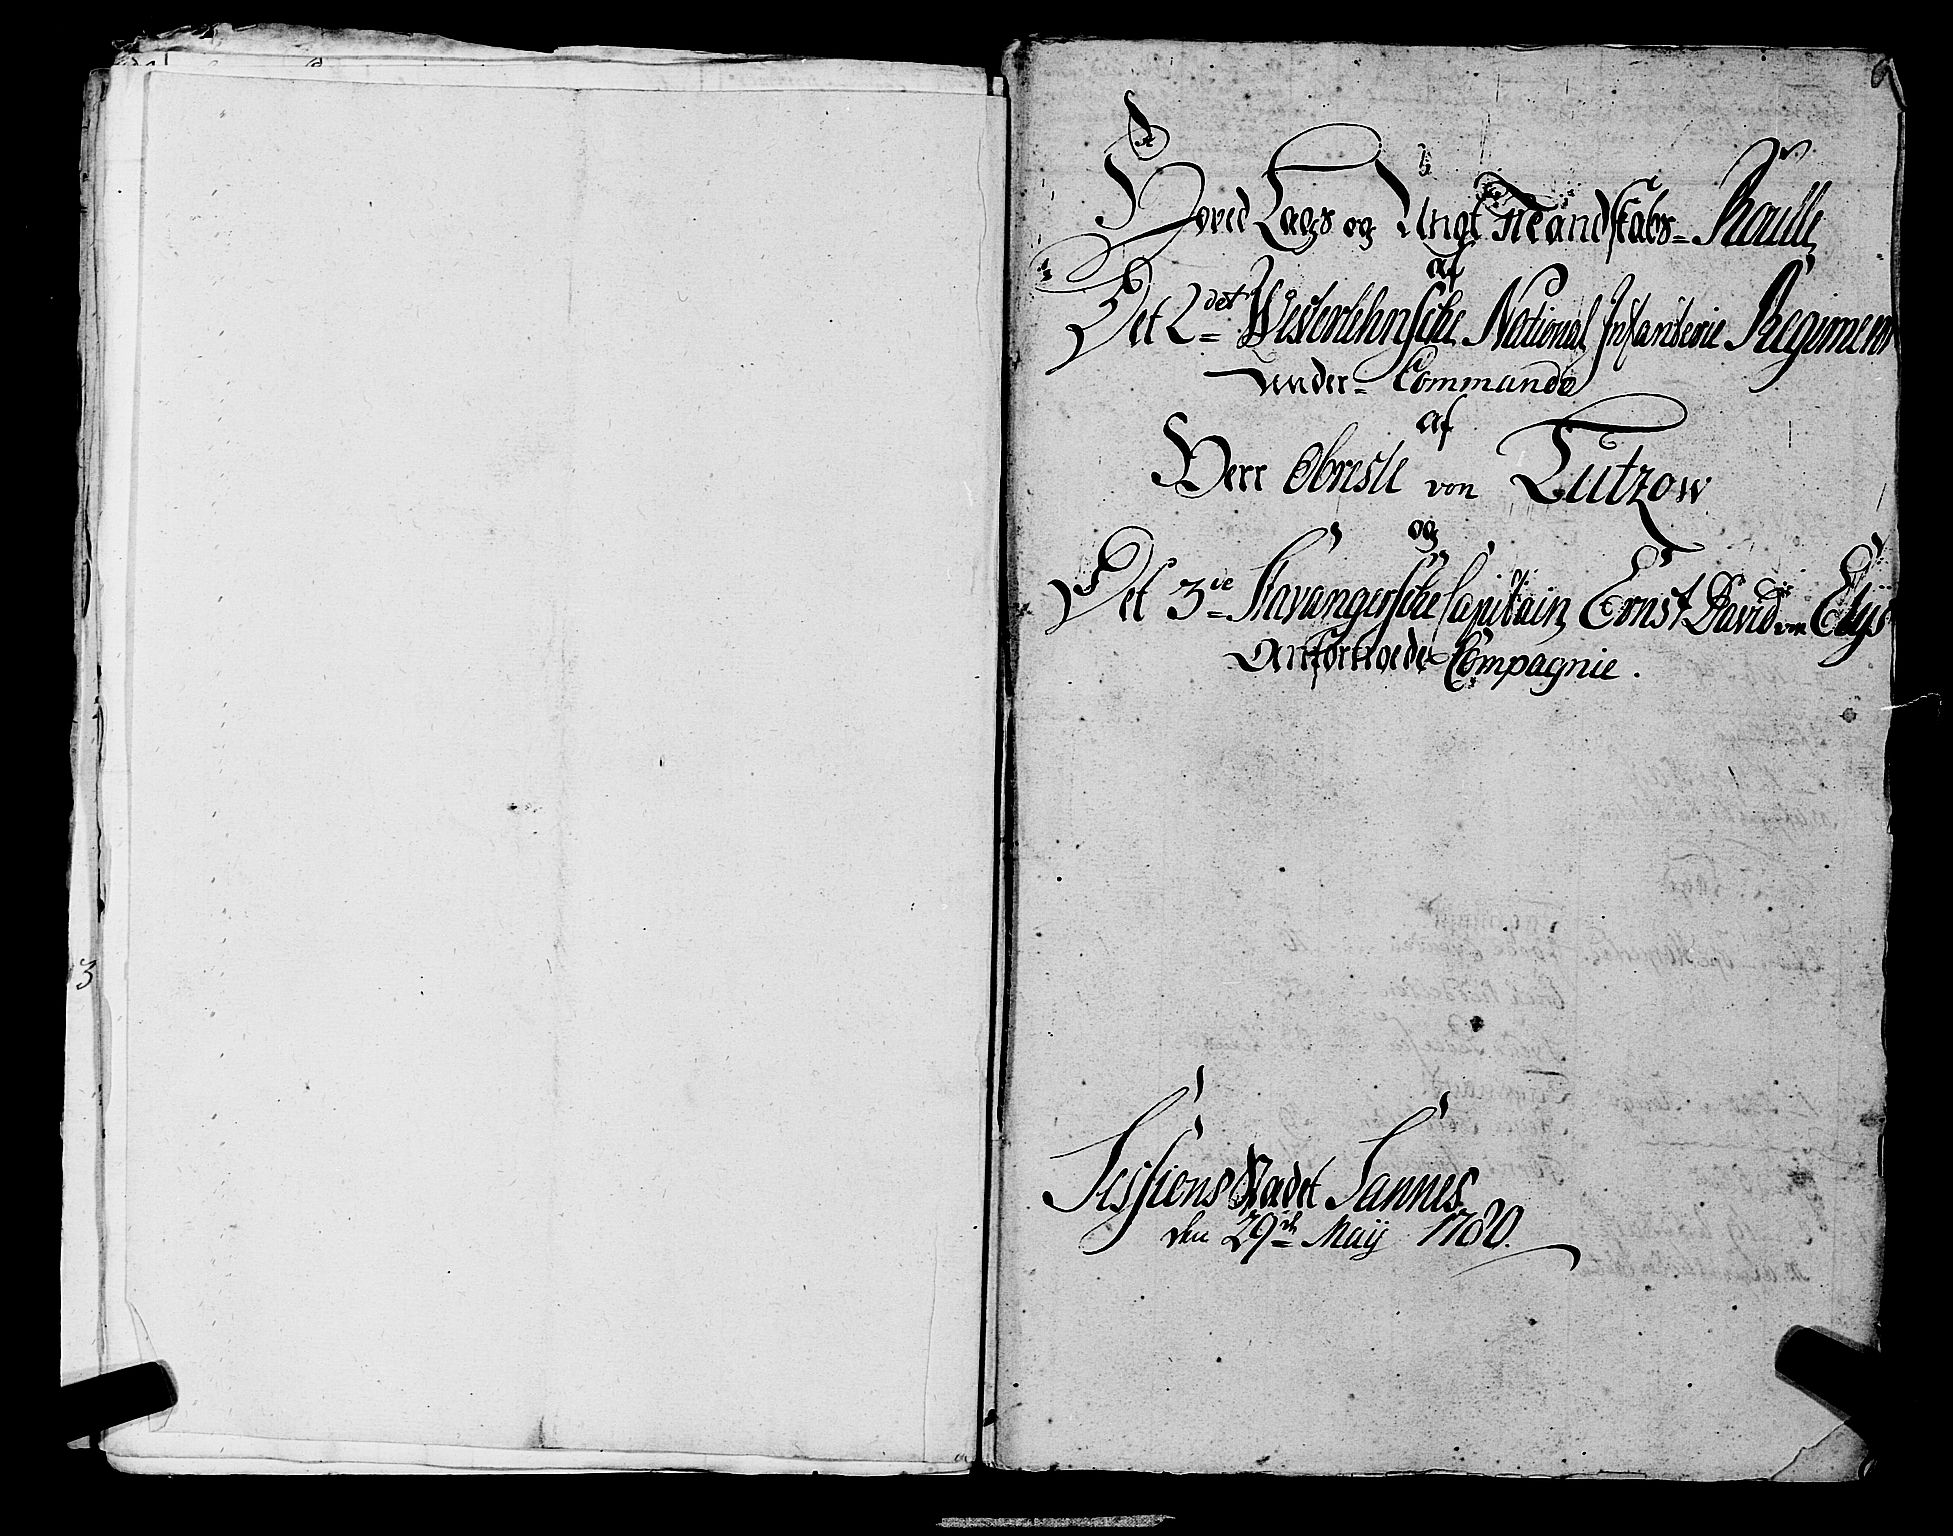 Hoved Laegs og Ungt Mandskabs= Roulle
af
Det 2det Westerlehnsche National Infanterie Regiment
under= Commando
af
Herr Obriste von Lutzow
og
Det 3die Stavangersche Capitain Ernst David von
Anfortroede Compagnie.
3
Sessions Stædet Sannes
den 29de Maÿ 1780.